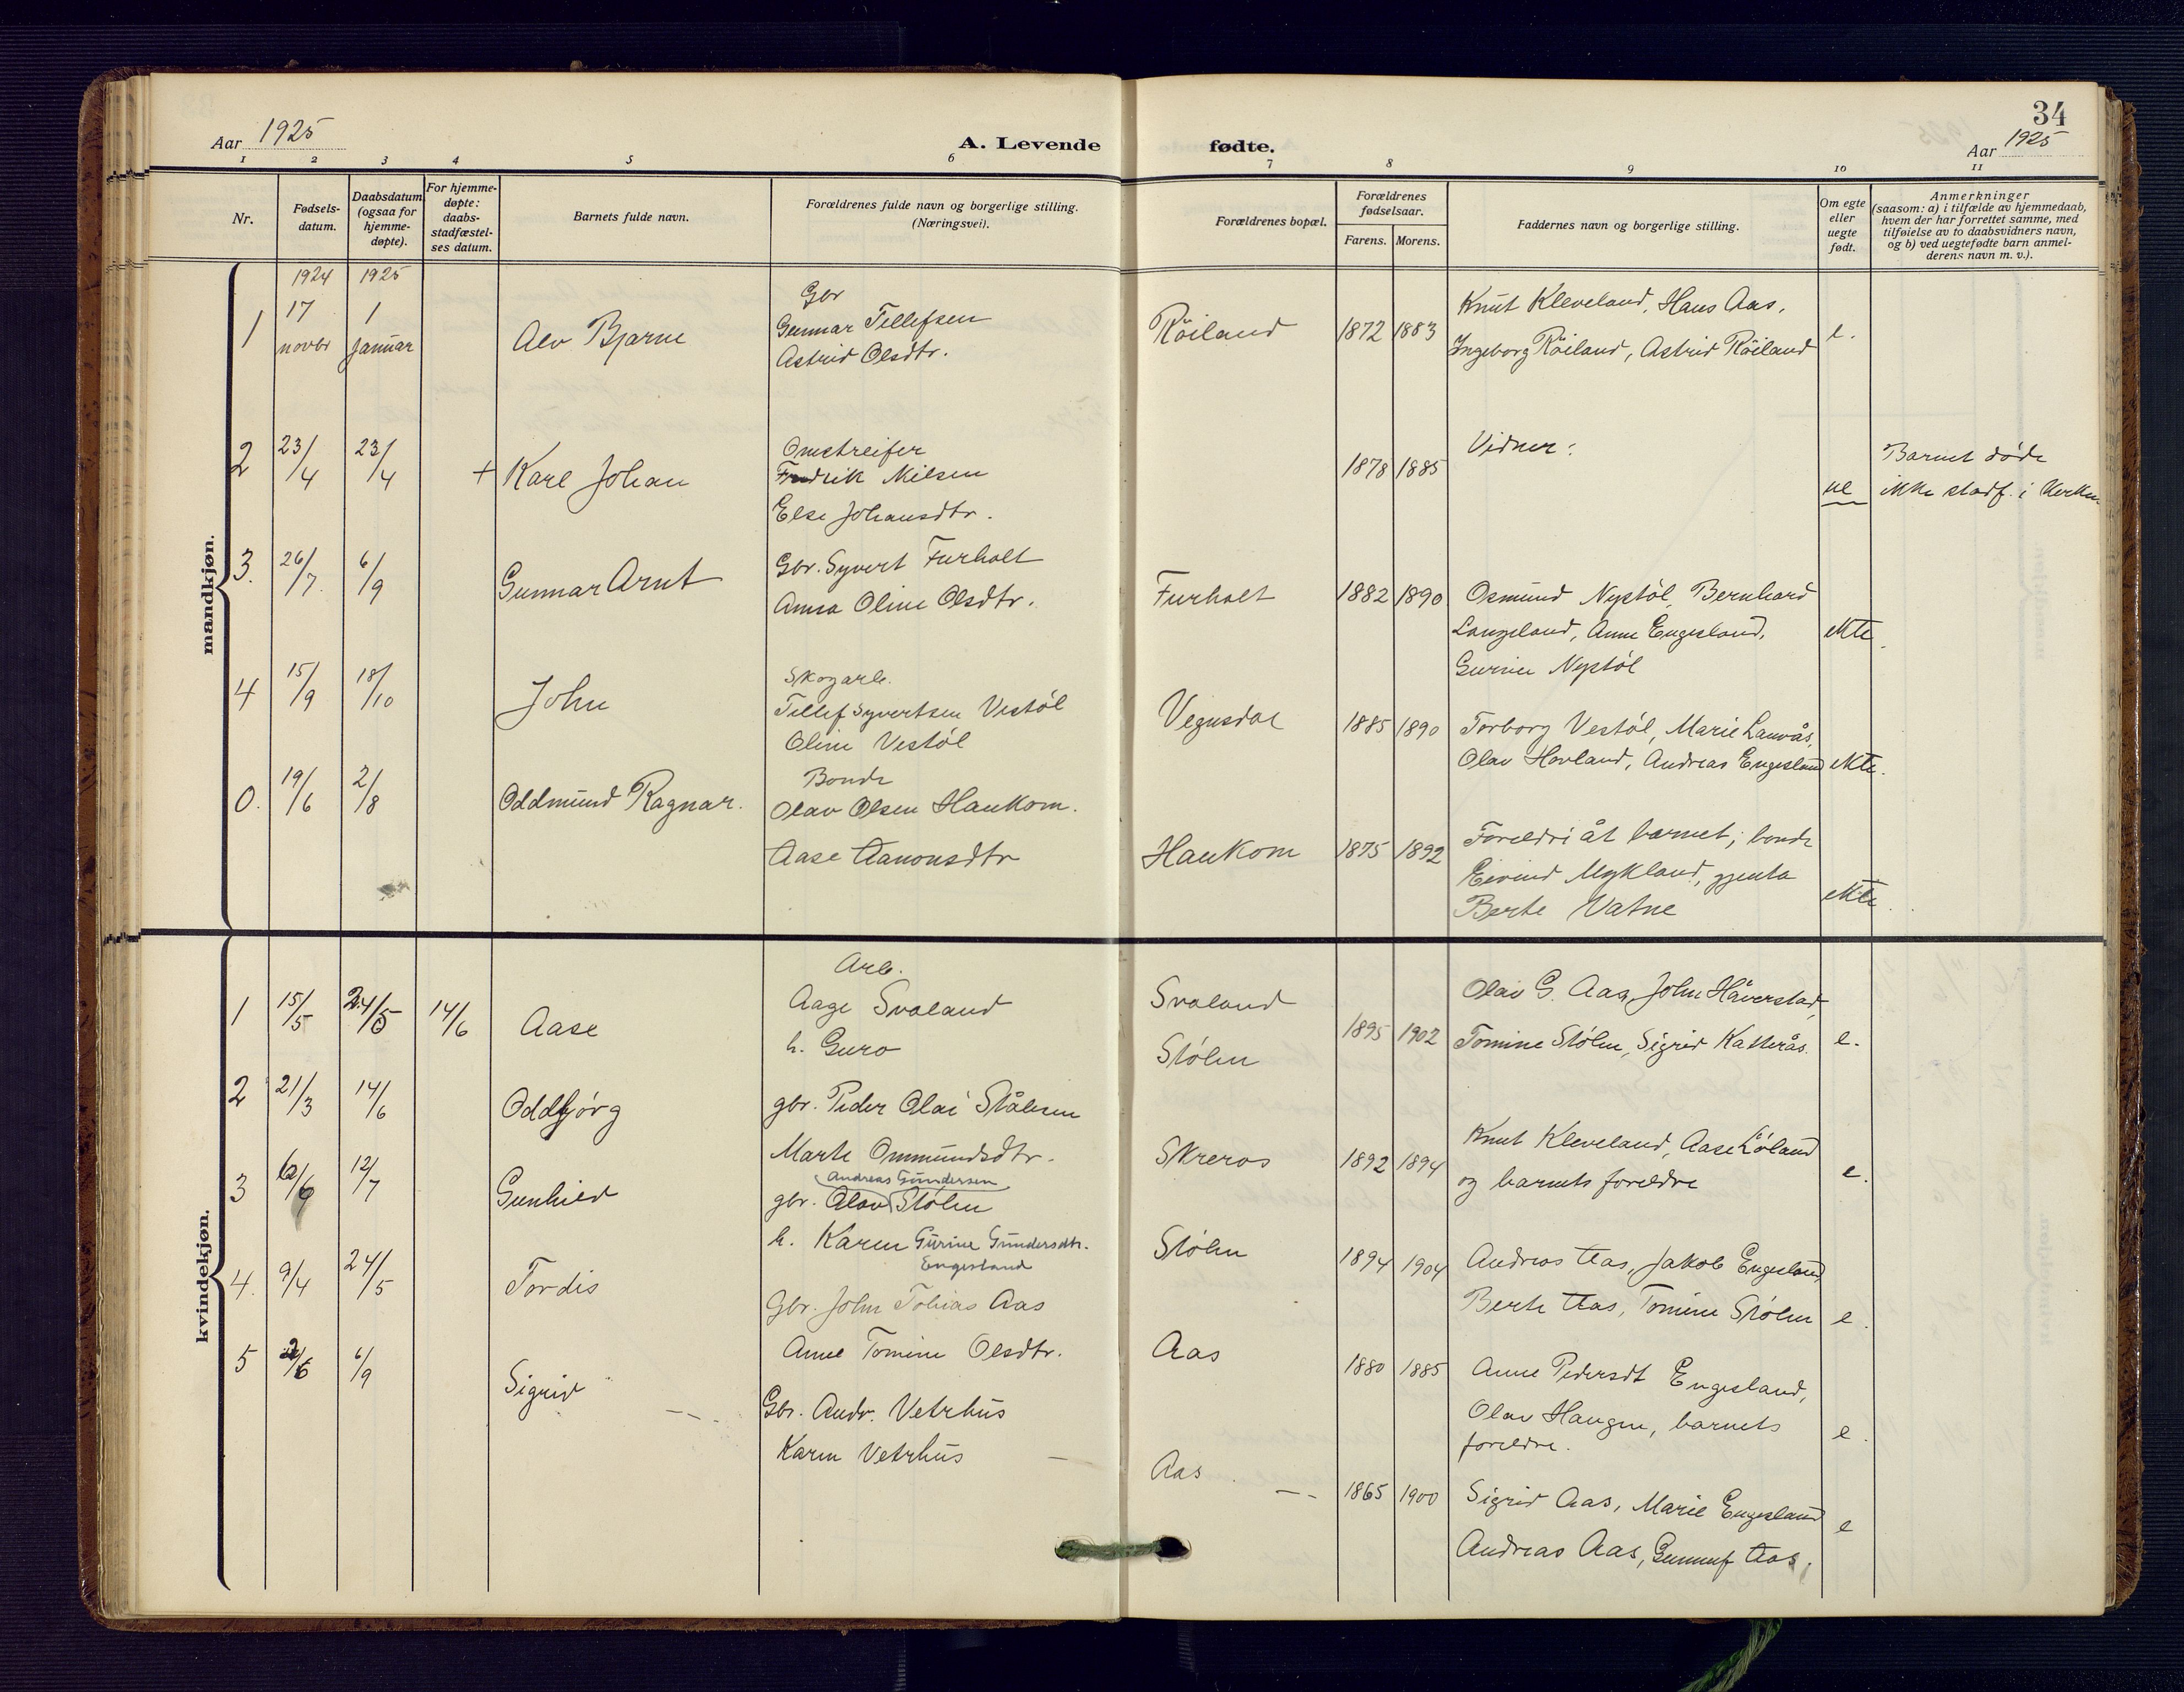 34
Aar 1925
A. Levende fødte.
Aar 1925
1 2 3 4 5 6 7 8 9 10 11
Nr.
Fødsels-
datum.
Daabsdatum
(ogsaa for
hjemme-
døpte).
For hjemme-
døpte:
daabs-
stadfæstel-
ses datum.
Barnets fulde navn.
Forældrenes fulde navn og borgerlige stilling.
(Næringsvei).
Forældrenes bopæl.
Forældrenes
fødselsaar.
Farens. Morens.
Faddernes navn og borgerlige stilling.
Om egte
eller
uegte
født.
Anmerkninger
(saasom: a) i tilfælde av hjemmedaab,
hvem der har forrettet samme, med
tilføielse av to daabsvidners navn,
og b) ved uegtefødte barn anmel-
derens navn m. v.).
mandkjøn.
1924 1925
1 17 novbr 1 januar Alv Bjarne
Gbr
Gunnar Tellefsen
Astrid Olsdtr.
Röiland 1872 1883
Knut Kleveland, Hans Aas,
Ingeborg Röiland, Astrid Röiland
e.
2 23/4 23/4 + Karl Johan
Omstreifer
Fredrik Nilsen
Else Johansdtr.
1878 1885
Vidner:
ue
Barnet døde
ikke stadf. i Kerken
3. 26/7 6/9 Gunnar Arnt
Gbr. Syvert Furholt
Anna Oline Olsdtr.
Furholt 1882 1890
Osmund Nystøl, Bernhard
Langeland, Anne Engesland,
Gurine Nystøl
ekte.
4 15/9 18/10 John
Skogarb.
Tellef Syvertsen Vestøl
Oline Vestøl
Vegusdal 1885 1890
Torborg Vestøl, Marie Lauvås,
Olav Hovland, Andreas Engesland
ekte.
0. 19/6 2/8 Oddmund Ragnar.
Bonde
Olav Olsen Haukom.
Aase Aanonsdtr
Haukom 1875 1892
Foreldri åt barnet, bonde
Eivind Mykland, gjenta
Berte Vatne
ekte.
kvindekjøn.
1 15/5 24/5 14/6 Aase
Arb.
Aage Svaland
h. Guro
Svaland
Stølen
1895 1902
Olav G. Aas, John Håverstad,
Tomine Stølen, Sigrid Katterås.
e.
2 21/3 14/6 Oddbjørg
gbr. Peder Olai Stålesen
Marte Ommundsdtr.
Skreros 1892 1894
Knut Kleveland, Aase Løland
og barnets foreldre
e.
3 12/7 Gunhild
Andreas Gundersen
gbr. Olav Stølen
h. Karen Gurine Gundersdtr.
Engesland
Stølen 1894 1904
Andreas Aas, Jakob Engesland,
Berte Aas, Tomine Stølen
e.
4. 9/4 24/5 Tordis
Gbr. John Tobias Aas
Anne Tomine Olsdtr.
Aas 1880 1885
Anne Pedersdt Engesland,
Olav Haugen, barnets
foreldre.
e.
5 6/9 Sigrid
Gbr. Andr. Vetrhus
Karen Vetrhus
Aas 1865 1900
Sigrid Aas, Marie Engesland
Andreas Aas, Gunnuf Aas,
e